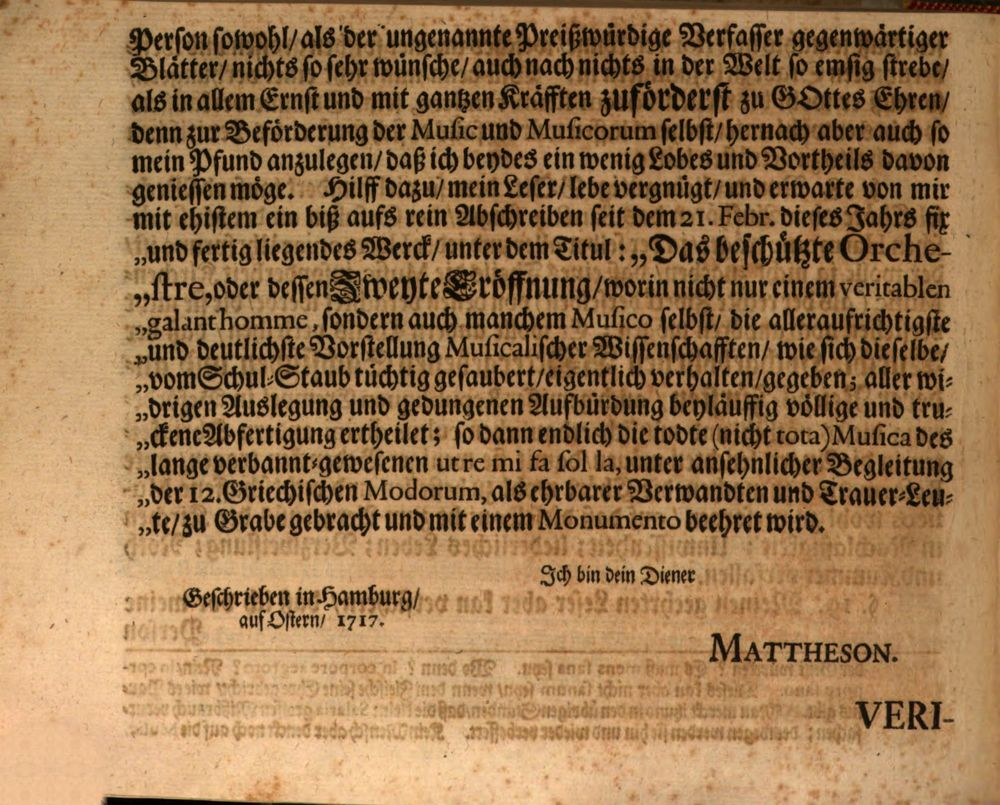 Person sowohl/ als der ungenannte Preißwürdige Verfasser gegenwärtiger
Blätter/ nichts so sehr wünsche/ auch nach nichts in der Welt so emsig strebe/
als in allem Ernst und mit gantzen Kräfften zuförderst zu GOttes Ehren/
denn zur Beförderung der Music und Musicorum selbst/ hernach aber auch so
mein Pfund anzulegen/ daß ich beydes ein wenig Lobes und Vortheils davon
geniessen möge. Hilff dazu/ mein Leser/ lebe vergnügt/ und erwarte von mir
mit ehistem ein biß aufs rein Abschreiben seit dem 21. Febr. dieses Jahrs fix
„und fertig liegendes Werck/ unter dem Titul: „Das beschützte Orche-
„stre, oder dessen Zweyte Eröffnung/ worin nicht nur einem veritablen
„galant homme, sondern auch manchem Musico selbst/ die alleraufrichtigste
„und deutlichste Vorstellung Musicalischer Wissenschafften/ wie sich dieselbe/
„vom Schul-Staub tüchtig gesaubert/ eigentlich verhalten/ gegeben; aller wi-
„drigen Auslegung und gedungenen Aufbürdung beyläuffig völlige und tru-
„ckene Abfertigung ertheilet; so dann endlich die todte (nicht tota) Musica des
„lange verbannt-gewesenen ut re mi fa sol la, unter ansehnlicher Begleitung
„der 12. Griechischen Modorum, als ehrbarer Verwandten und Trauer-Leu-
„te/ zu Grabe gebracht und mit einem Monumento beehret wird.
Ich bin dein Diener
Geschrieben in Hamburg/
auf Ostern/ 1717.
MATTHESON.
VERI-